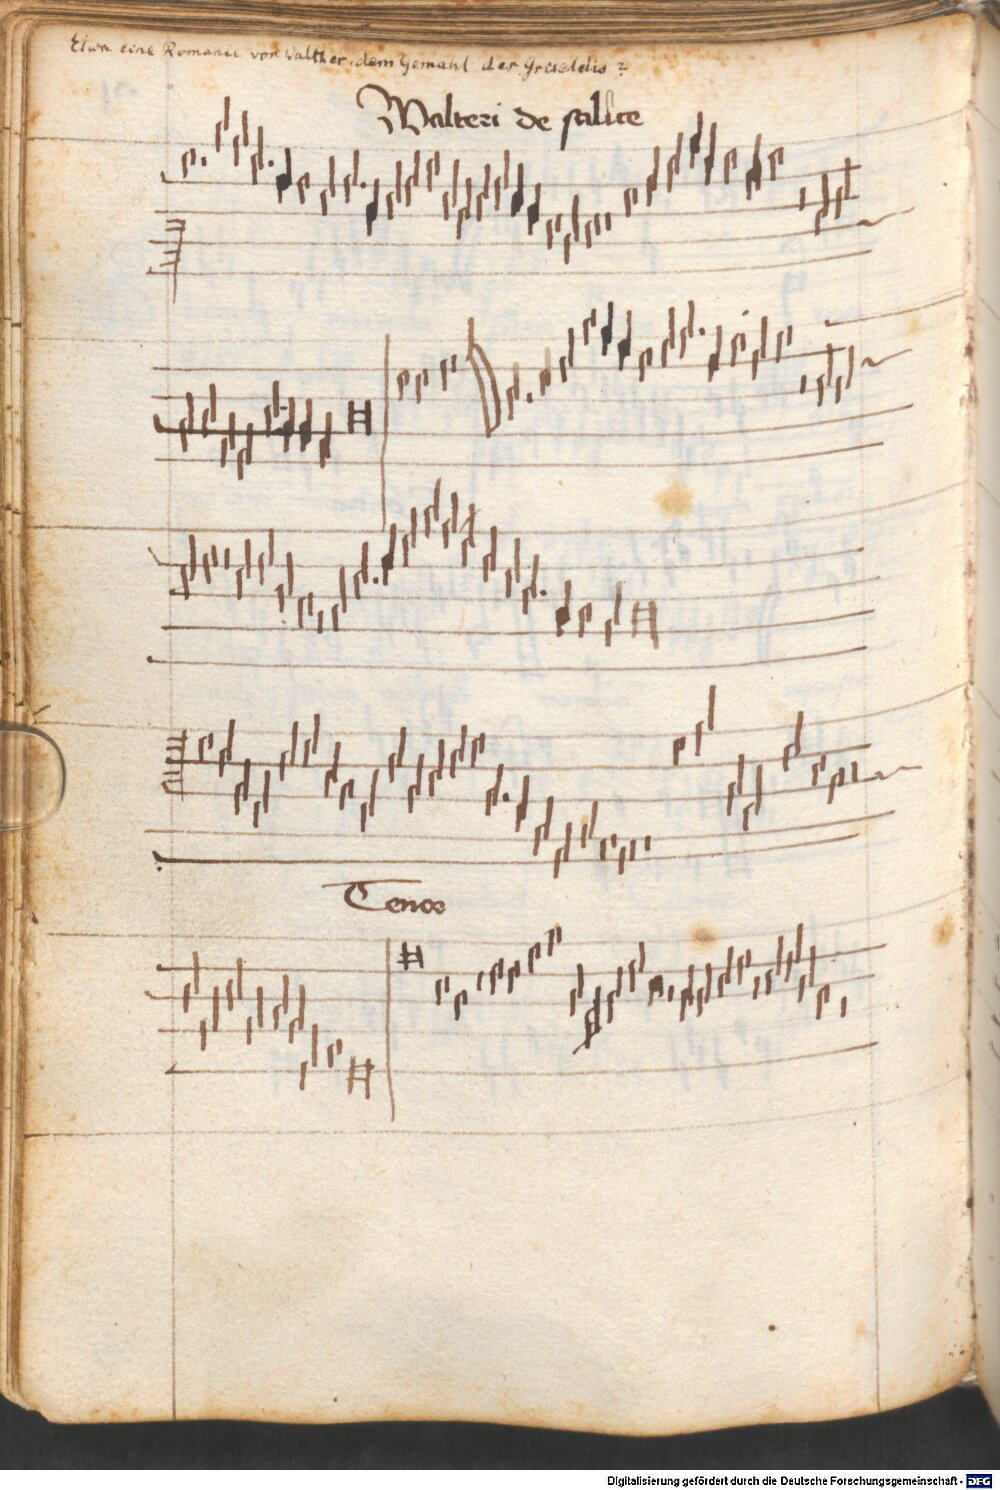 Etwa eine Romanze von Walther, dem Gemahl der Griseldis?
Walteri de salice
Tenor
Digitalisierung gefördert durch die Deutsche Forschungsgemeinschaft - DFG